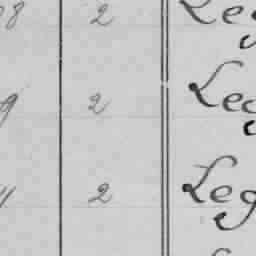 8 2 Leg
9 2 Leg
11 2 Leg